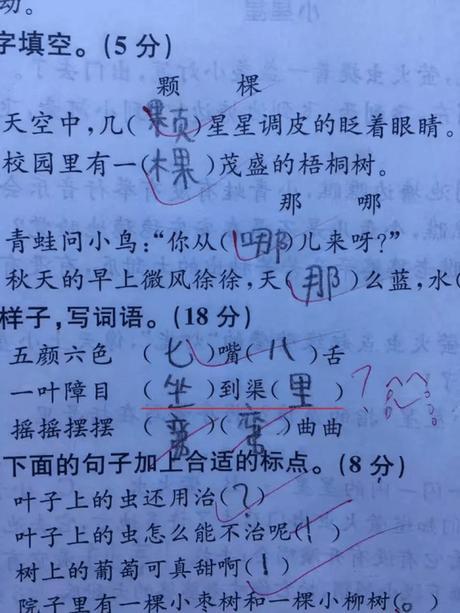 动。
字填空。(5分)
颗 棵
天空中,几(颗)星星调皮的眨着眼睛。
校园里有一(棵)茂盛的梧桐树。
那 哪
青蛙问小鸟:“你从(哪)儿来呀?”
秋天的早上微风徐徐,天(那)么蓝,水(
样子,写词语。(18分)
五颜六色 (七)嘴(八)舌
一叶障目 (坐)到渠(里)
摇摇摆摆 (弯)(弯)曲曲
下面的句子加上合适的标点。(8分)
叶子上的虫还用治(?)
叶子上的虫怎么能不治呢(!)
树上的葡萄可真甜啊(!)
院子里有一棵小枣树和一棵小柳树(。)